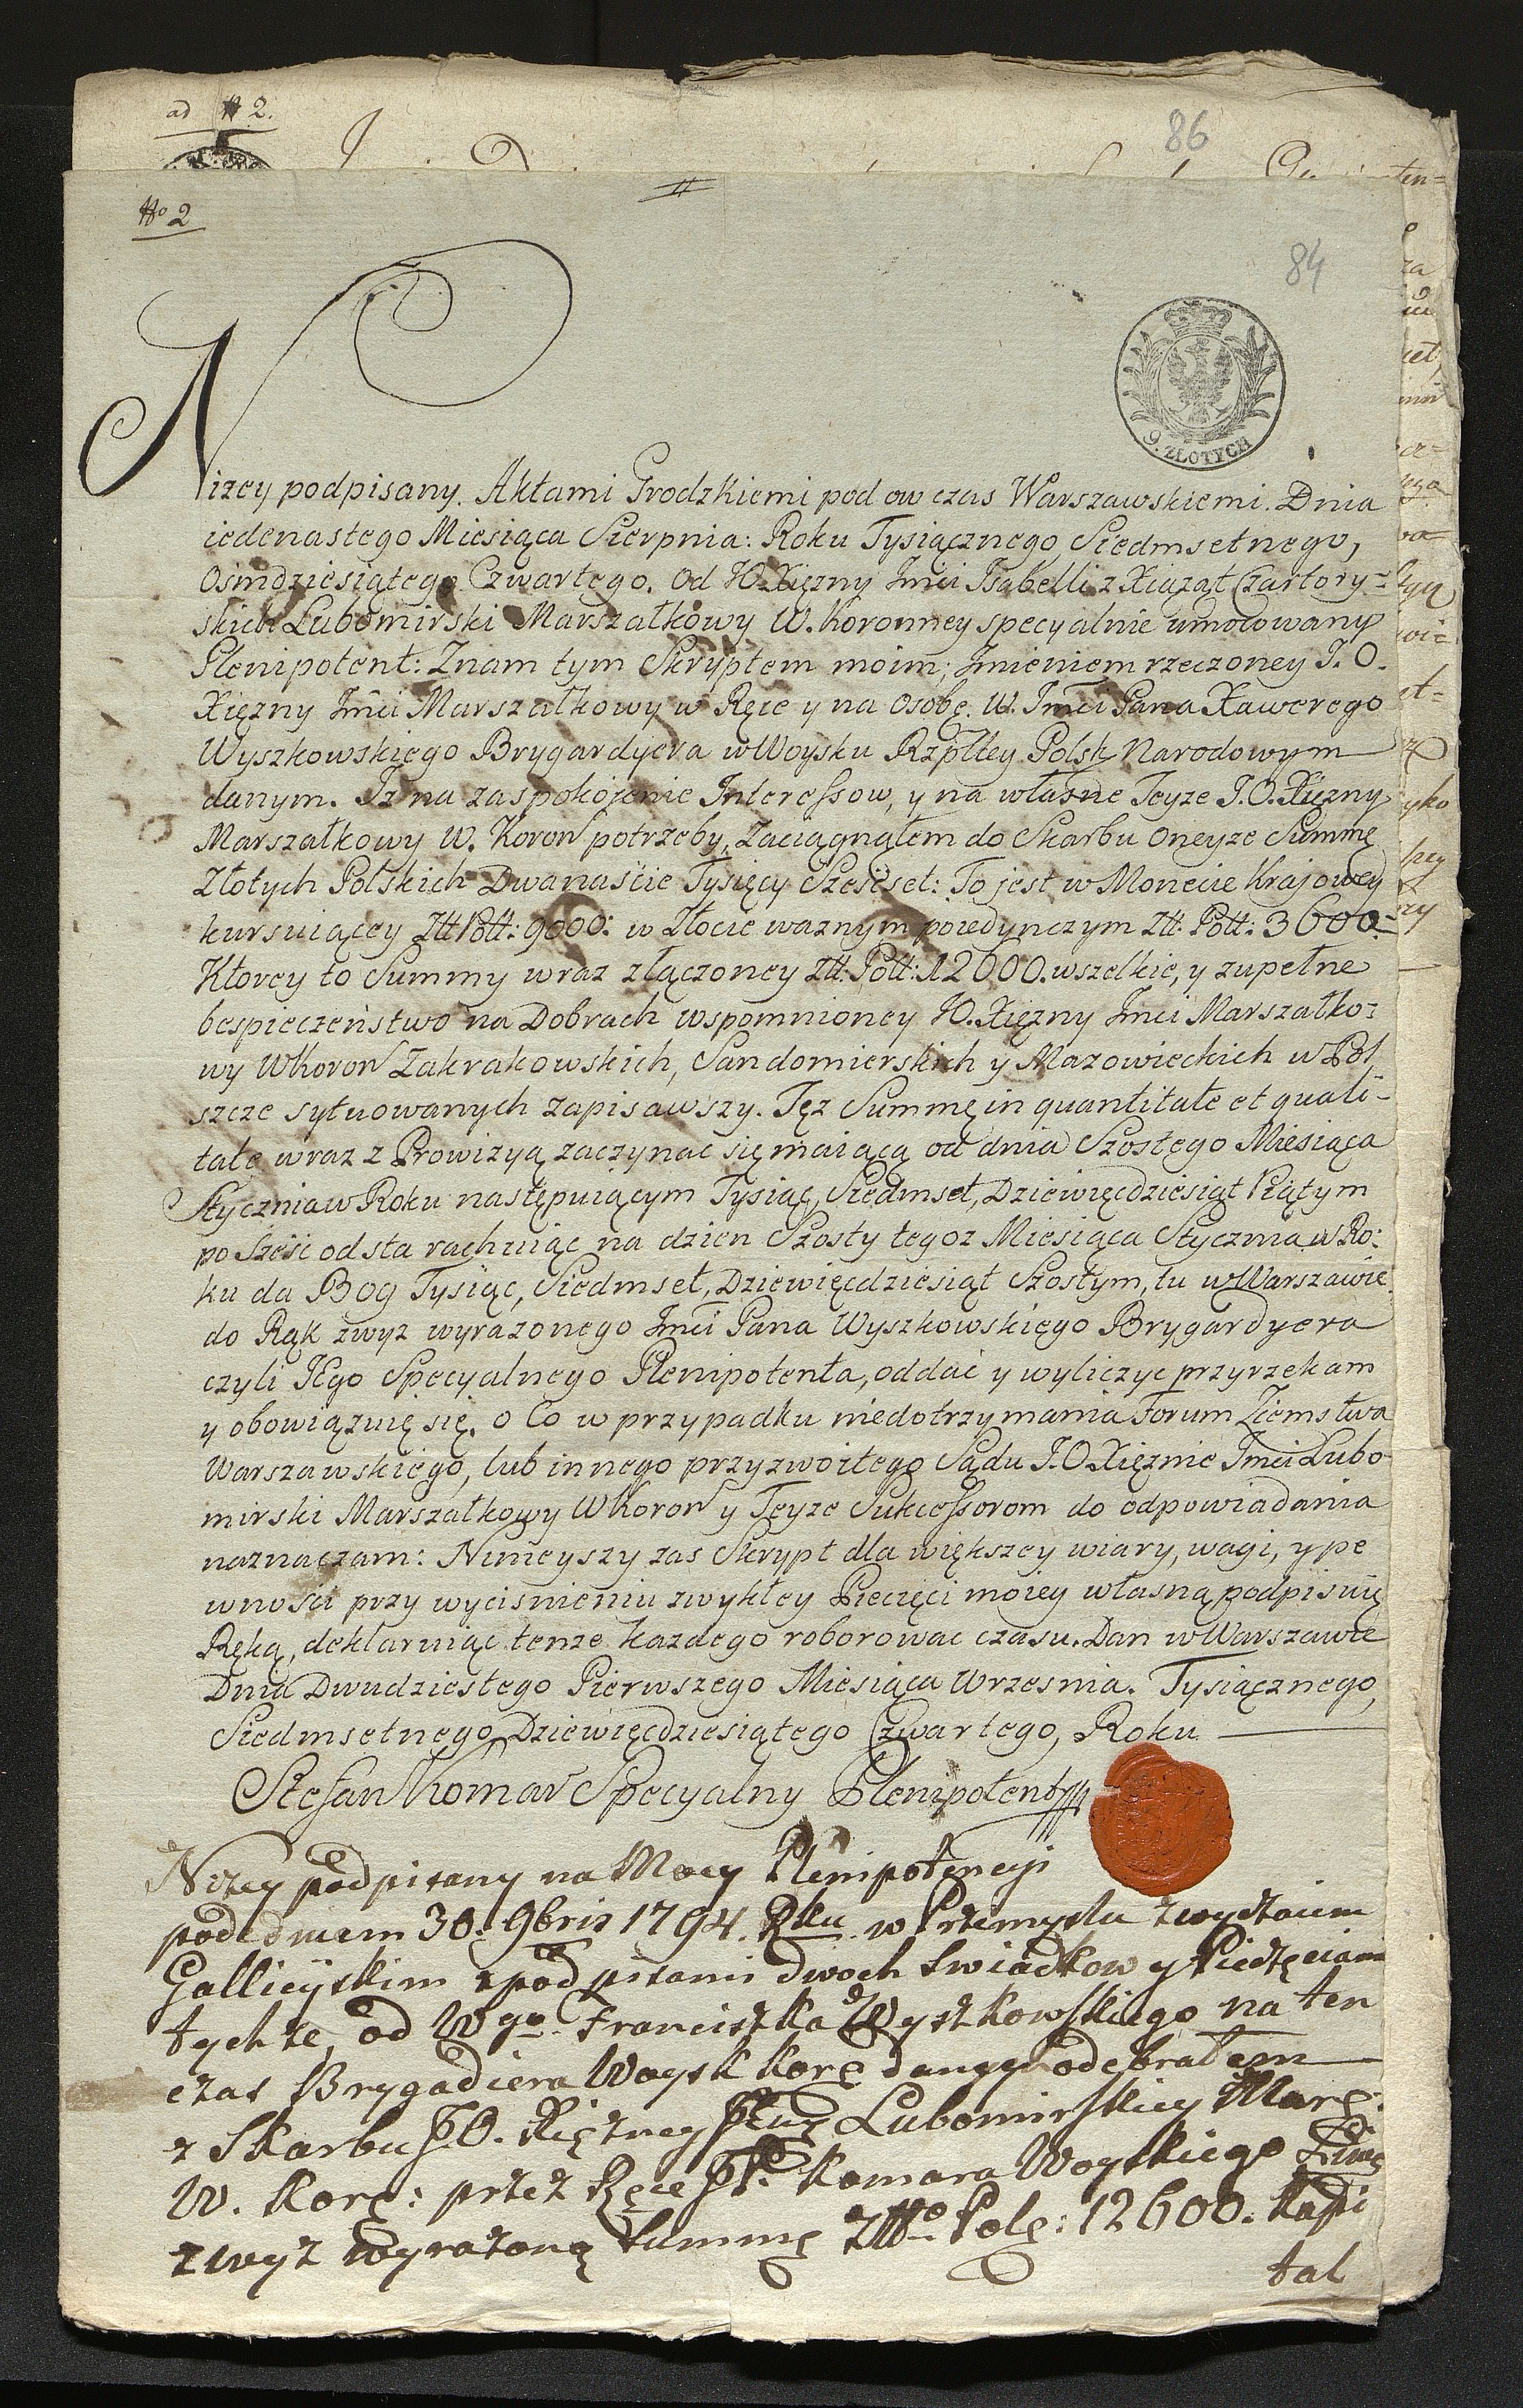 ad # 2.
86
No 2
84
9. ZŁOTYCH
Niżey podpisany. Aktami Grodzkiemi pod ow czas Warszawskiemi. Dnia
iedenastego Miesiąca Sierpnia: Roku Tysiącznego Siedmsetnego,
Osmdziesiątego Czwartego. Od JO. Xięzny Jmci Isabelli z Xiąząt Czartory-
skich Lubomirski Marszałkowy W. Koronney specyalnie umocowany
Plenipotent: Znam tym Skryptem moim; Jmieniem rzeczoney J. O.
Xięzny Jmci Marszałkowy w Ręce y na Osobę. W. Jmci Pana Xawerego
Wyszkowskiego Brygardyera w Woysku Rzpltey Polsk Narodowym
danym. Iz na zaspokojenie Interessow, y na własne Teyze J. O. Xięzny
Marszałkowy W. Koron potrzeby, Zaciągnąłem do Skarbu Oneyze Summę
Złotych Polskich Dwanaście Tysięcy Szescset: To jest w Monecie Krajowey
kursuiącey Złł Poll: 9000: w Złocie waznym poiedynczym Złł. Poll: 3600.-
Ktorey to Summy wraz złączoney Złł: Poll: 12600. wszelkie, y zupełne
bespieczeństwo na Dobrach wspomnioney JO. Xięzny Jmci Marszałko-
wy W Koron Zakrakowskich, Sandomierskich y Mazowieckich w Pol
szcze sytuowanych zapisawszy. Tęz Summę in quantitate et quali-
tate wraz z Prowizyą zaczynac się maiącą od dnia Szostego Miesiąca
Stycznia w Roku następuiącym Tysiąc, Siedmset, Dziewięcdziesiąt Piątym
po Sześć od sta rachuiąc na dzien Szosty tegoz Miesiąca Stycznia w Ro-
ku da Bog Tysiąc, Siedmset, Dziewięcdziesiąt Szostym, tu w Warszawie
do Rąk zwyz wyrazonego Jmci Pana Wyszkowskięgo Brygardyera
czyli Jego Specyalnego Plenipotenta, oddać y wyliczyc przyrzekam
y obowiązuię się. o Co w przypadku niedotrzymania Forum Ziemstwa
Warszawskiego, lub innego przyzwoitego Sądu J. O Xięznie Jmci Lubo-
mirski Marszałkowy W Koron y Teyze Sukcessorom do odpowiadania
naznaczam: Ninieyszy zas Skrypt dla większey wiary, wagi, y pe
wnosci przy wycisnieniu zwykłey Pieczęci moiey własną podpisuię
Ręką, deklaruiąc tenze kazdego roborowac czasu. Dan w Warszawie
Dnia Dwudziestego Pierwszego Miesiąca Wrzesnia. Tysiącznego,
Siedmsetnego, Dziewięcdziesiątego Czwartego, Roku
Stefan Komar Specyalny Plenipotent
Niżey podpisany na Mocy Plenipotencyi
pod dniem 30. 9bris 1794. Rku w Przemyslu zwyczaiem
Gallicyskim z podpisami dwoch Swiadkow y Pieczęciami
tychże, od Wgo. Franciszka Wyszkowskiego na ten
czas Brygadiera Woysk Korę daney odebrałem
z Skarbu JO. Xiężney Lubomirskiey Marę:
W. Korę: przez Ręce JP. Komara Woyskiego
zwyz wyrażoną Summę Zło. Polę: 12600. Kapi
tal